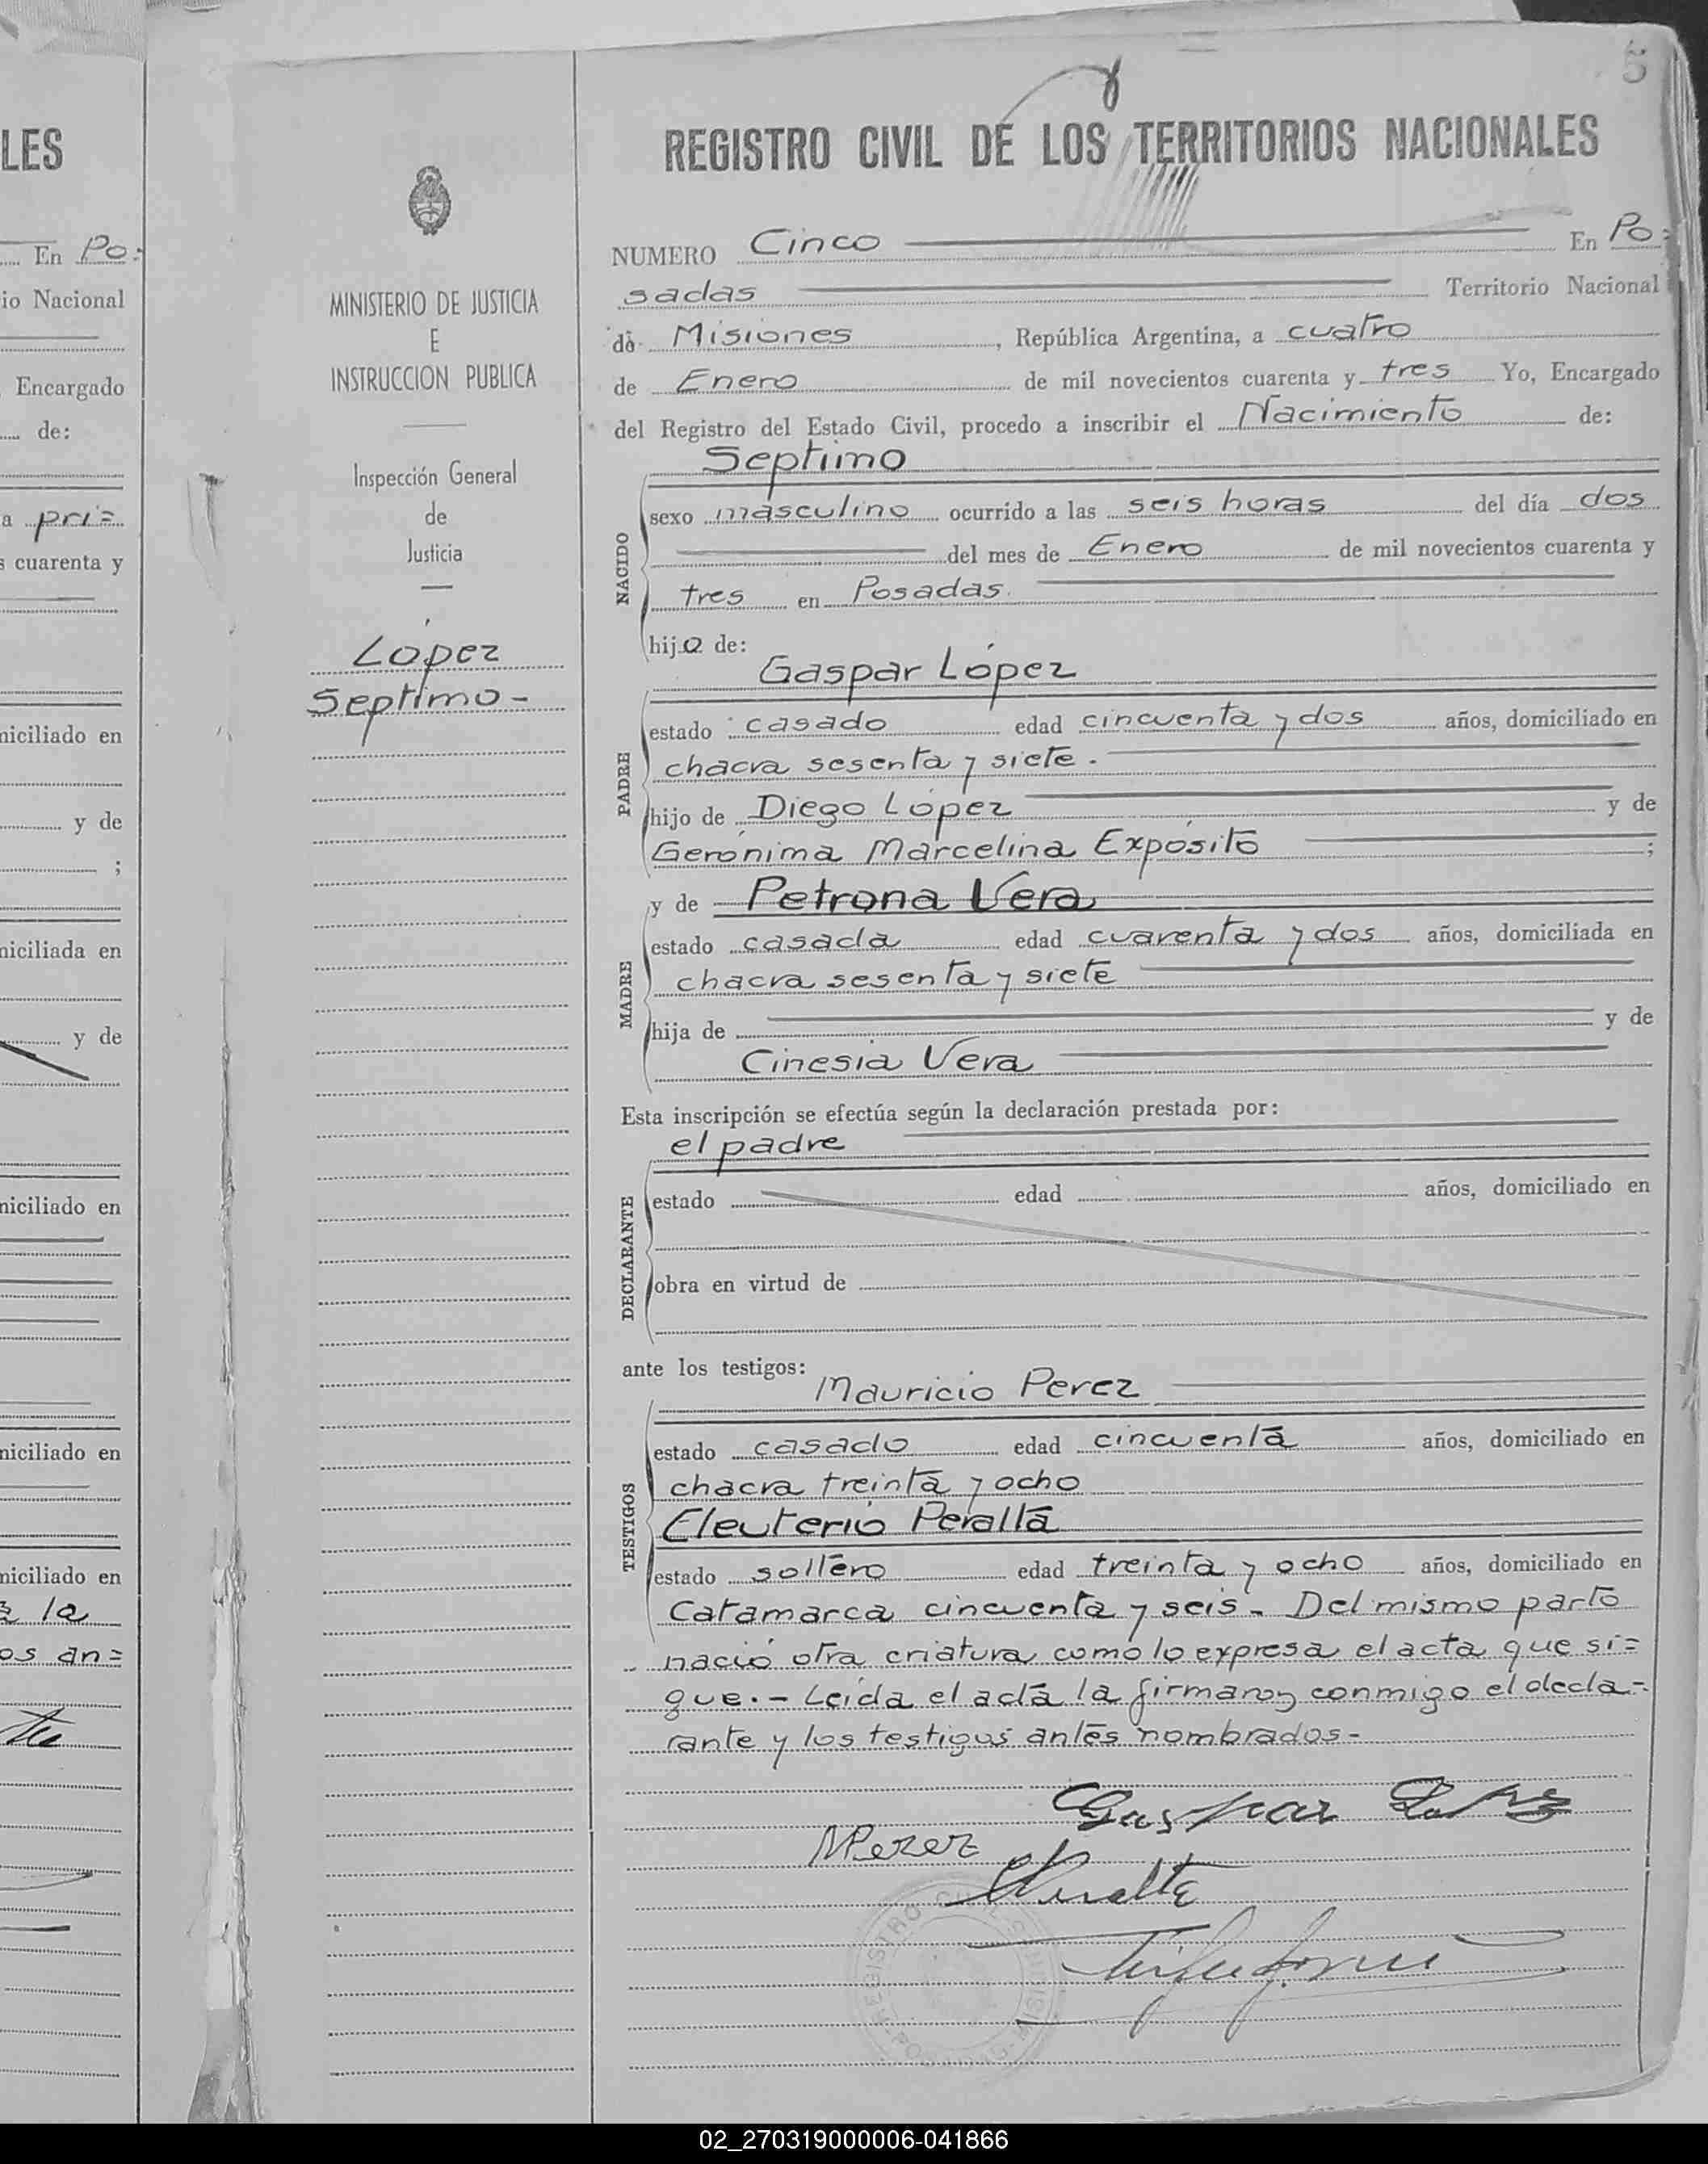 5
REGISTRO CIVIL DE LOS TERRITORIOS NACIONALES
NUMERO Cinco En Po=
sadas Territorio Nacional
de Misiones, República Argentina, a cuatro
de Enero de mil novecientos cuarenta y tres Yo, Encargado
del Registro del Estado Civil, procedo a inscribir el Nacimiento de:
Septimo
NACIDO
sexo masculino ocurrido a las seis horas del día dos
del mes de Enero de mil novecientos cuarenta y
tres en Posadas.
hijo de:
Gaspar López
PADRE
estado casado edad cincuenta y dos años, domiciliado en
chacra sesenta y siete.
hijo de Diego López y de
Gerónima Marcelina Expósito ;
y de Petrona Vera
MADRE
estado casada edad cuarenta y dos años, domiciliada en
chacra sesenta y siete
hija de y de
Cinesia Vera
Esta inscripción se efectúa según la declaración prestada por:
el padre
DECLARANTE
estado edad años, domiciliado en
obra en virtud de
ante los testigos:
Mauricio Perez
TESTIGOS
estado casado edad cincuenta años, domiciliado en
chacra treinta y ocho
Eleuterio Peralta
estado soltero edad treinta y ocho años, domiciliado en
Catamarca cincuenta y seis. Del mismo parto
nació otra criatura como lo expresa el acta que si=
gue.- Leída el acta la firmaron conmigo el decla-
rante y los testigos antes nombrados-
Gaspar Lopez
MPerez
EPeralta
MINISTERIO DE JUSTICIA
E
INSTRUCCION PUBLICA
Inspección General
de
Justicia
López
Septimo-
LES
En Po=
io Nacional
Encargado
de:
a pri=
s cuarenta y
niciliado en
y de
;
niciliada en
y de
niciliado en
niciliado en
niciliado en
a la
os an=
02_270319000006-041866